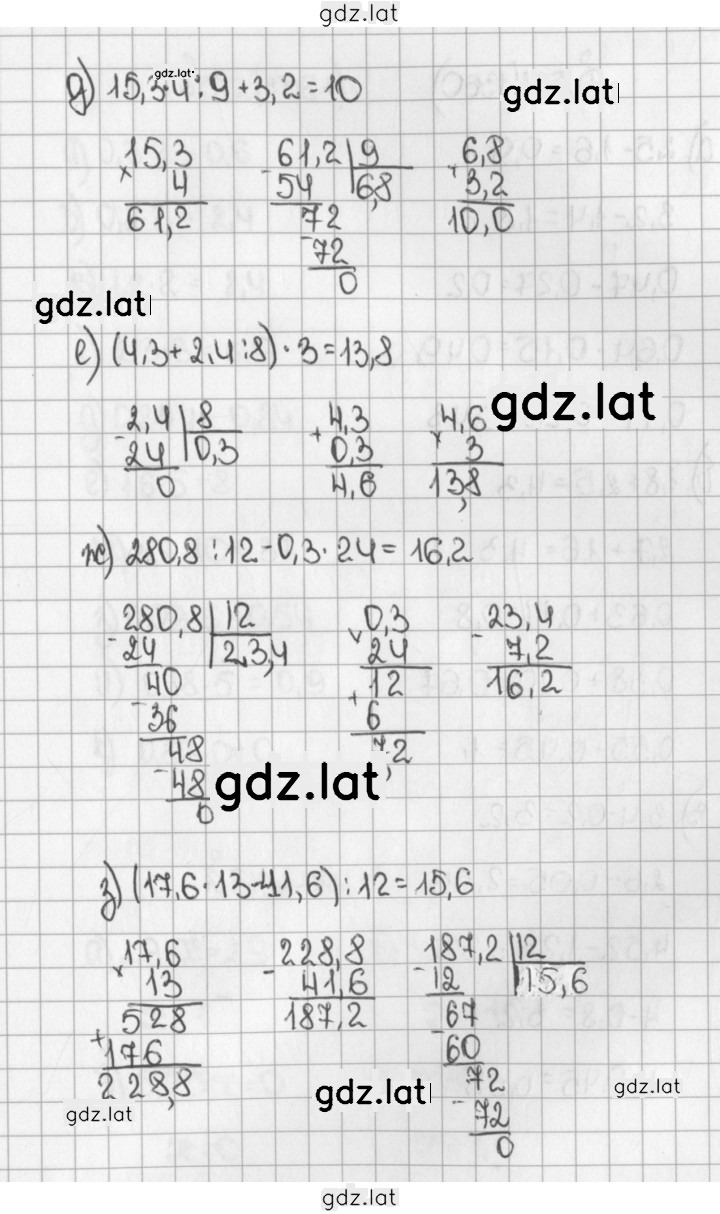 gdz.lat
gdz.lat
д) 15,3·4:9+3,2=10
gdz.lat
15,3 61,2 9 6,8
× 4 - 54 6,8 + 3,2
61,2 72 10,0
- 72
0
gdz.lat
е) (4,3+2,4:8)·3=13,8
gdz.lat
2,4 8 4,3 4,6
- 24 0,3 + 0,3 × 3
0 4,6 13,8
ж) 280,8:12-0,3·24=16,2
280,8 12 0,3 23,4
- 24 23,4 × 24 - 7,2
40 12 16,2
- 36 + 6
48 7,2
- 48
gdz.lat
0
з) (17,6·13-41,6):12=15,6
17,6 228,8 187,2 12
× 13 - 41,6 - 12 15,6
528 187,2 67
+ 176 - 60
228,8 72
gdz.lat
gdz.lat
gdz.lat
- 72
0
gdz.lat